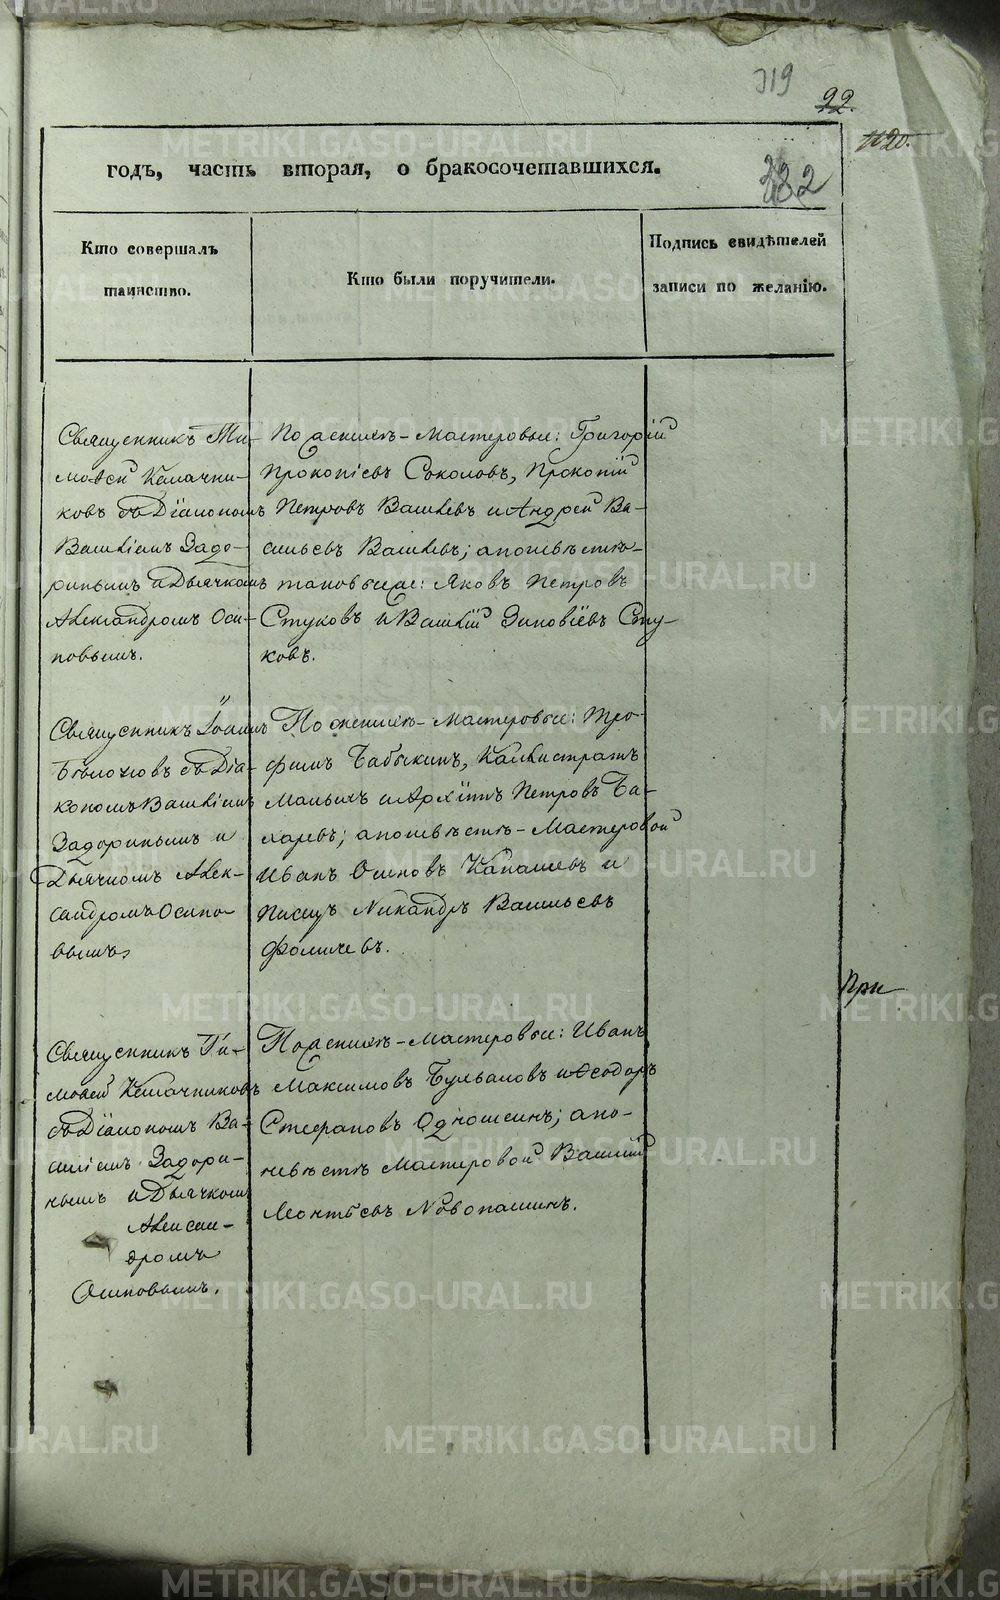 319
22.
1120.
годъ, часть вторая, о бракосочетавшихся.
332
Кто совершалъ
таинство.
Кто были поручители.
Подпись свидѣтелей
записи по желанію.
Священникъ Ти-
моѳей Калачни-
ковъ съ Діакономъ
Василіемъ Задо-
ринымъ и Дьячкомъ
Александромъ Оси-
повымъ.
По женихѣ - мастеровые: Григорій
Прокопіевъ Соколовъ, Прокопій
Петровъ Васиевъ и Андрей Ва-
сильевъ; а по невѣстѣ -
Яковъ Петровъ
Стуковъ и Василій Зиновіевъ Сту-
ковъ.
Священникъ Іоаннъ
съ Діа-
кономъ Василіемъ
Задоринымъ и
Дьячкомъ Алек-
сандромъ Осипо-
вымъ
По женихѣ - мастеровые: Тро-
фимъ Бабыкинъ, Каллистратъ
Малыхъ и Архипъ Петровъ Ба-
харевъ; а по невѣстѣ - Мастеровой
Иванъ Осиповъ и
Писецъ Никандръ Васильевъ
Фомичевъ.
При
Священникъ Ти-
моѳей Калачниковъ
съ Діакономъ Ва-
силіемъ Задори-
нымъ и Дьячкомъ
Алексан-
дромъ
Осиповымъ.
По женихѣ - мастеровые: Иванъ
Максимовъ Булываловъ и Ѳеодоръ
Стефановъ Одношеинъ; а по
невѣстѣ Мастеровой Василій
Леонтьевъ Новопашинъ.
METRIKI.GASO-URAL.RU